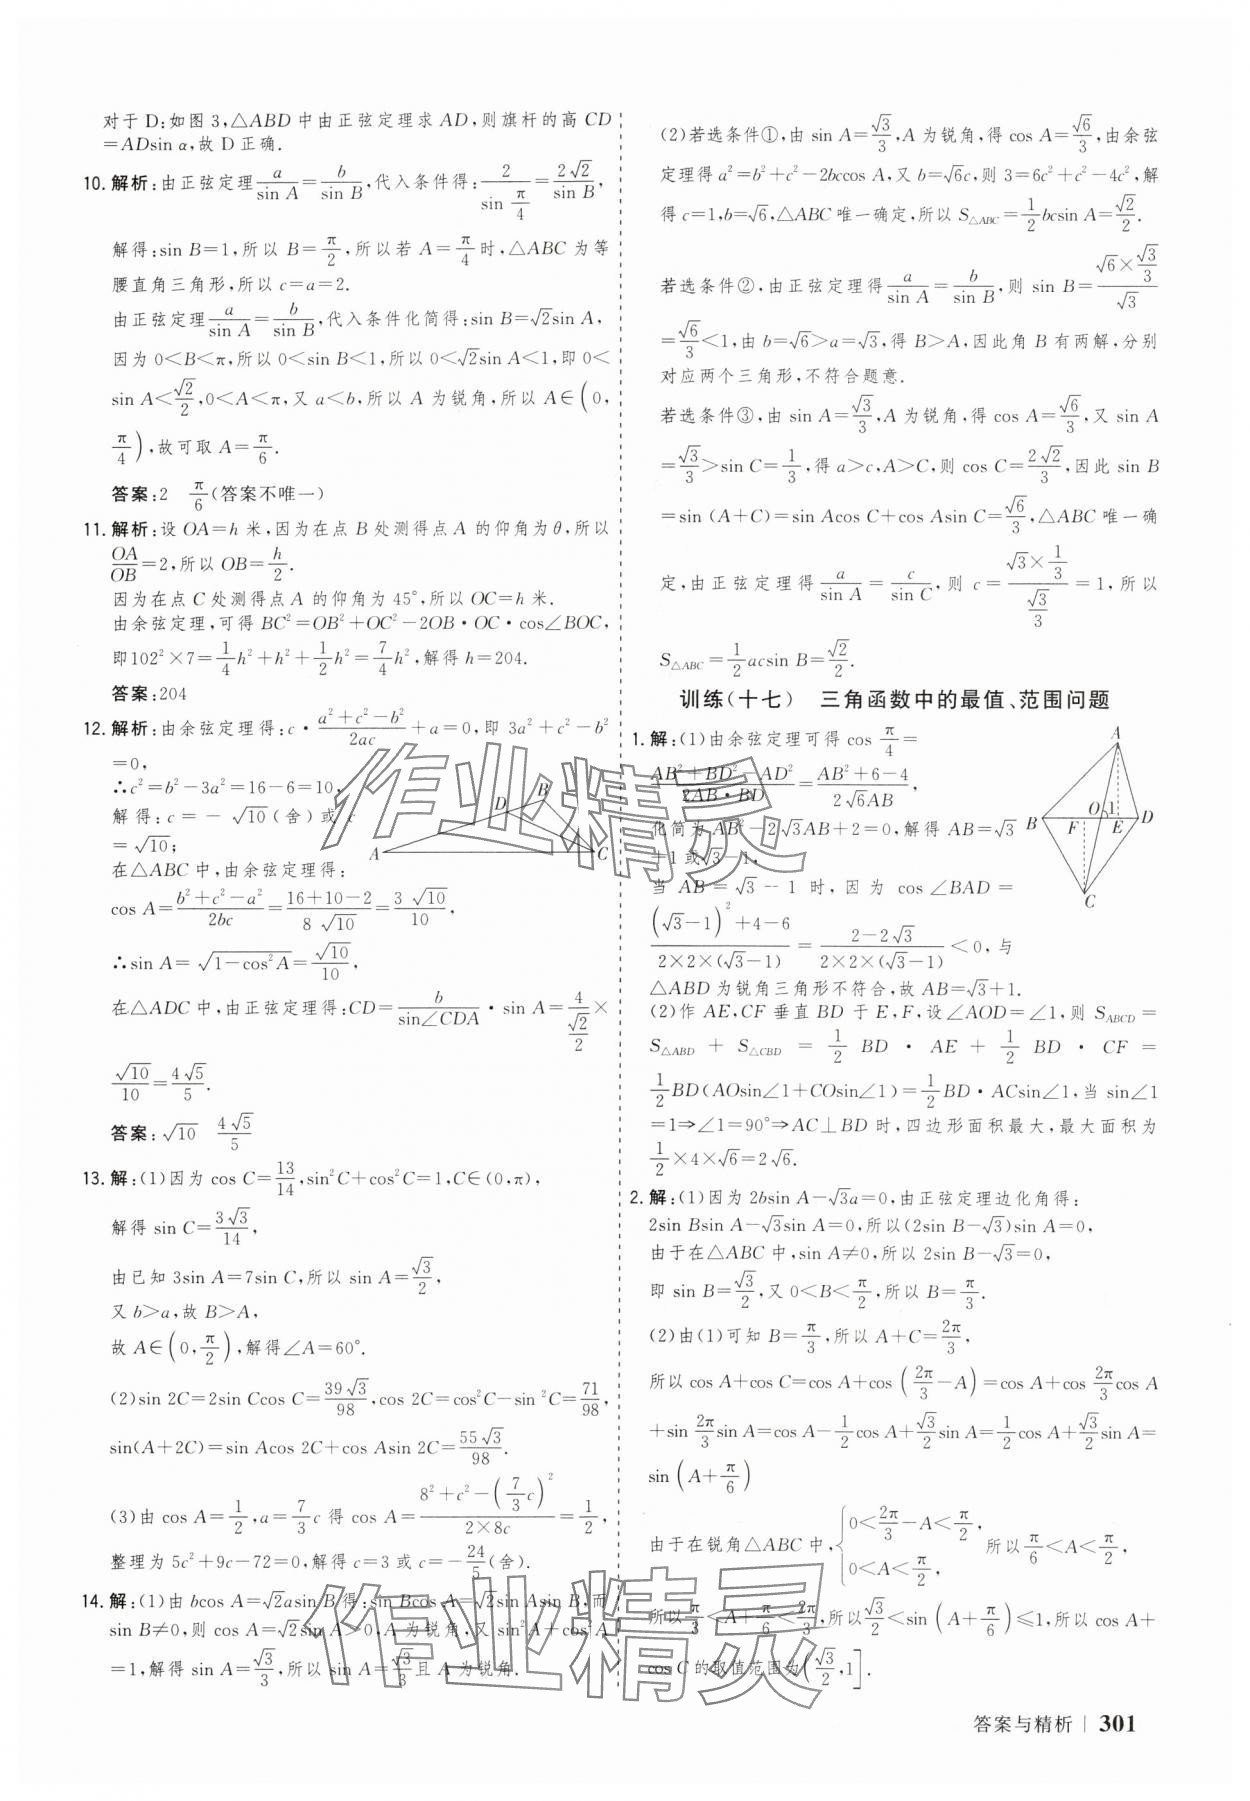 对于 D:如图 3,△ABD 中由正弦定理求 AD,则旗杆的高 CD
=ADsin α,故 D 正确.
10. 解析:由正弦定理 a/sin A = b/sin B,代入条件得: 2/sin(π/4) = 2√2/sin B,
解得:sin B=1,所以 B=π/2,所以若 A=π/4 时,△ABC 为等
腰直角三角形,所以 c=a=2.
由正弦定理 a/sin A = b/sin B,代入条件化简得:sin B=√2sin A,
因为 0<B<π,所以 0<sin B<1,所以 0<√2sin A<1,即 0<
sin A<√2/2,0<A<π,又 a<b,所以 A 为锐角,所以 A∈(0,
π/4),故可取 A=π/6.
答案:2 π/6(答案不唯一)
11. 解析:设 OA=h 米,因为在点 B 处测得点 A 的仰角为 θ,所以
OA/OB=2,所以 OB=h/2.
因为在点 C 处测得点 A 的仰角为 45°,所以 OC=h 米.
由余弦定理,可得 BC²=OB²+OC²-2OB·OC·cos∠BOC,
即102²×7=1/4h²+h²+1/2h²=7/4h²,解得 h=204.
答案:204
12. 解析:由余弦定理得:c·(a²+c²-b²)/2ac+a=0,即 3a²+c²-b²
=0,
∴c²=b²-3a²=16-6=10,
解得:c=-√10(舍)或 c
=√10;
A D B C
在△ABC 中,由余弦定理得:
cos A=(b²+c²-a²)/2bc=(16+10-2)/8√10=3√10/10,
∴sin A=√(1-cos²A)=√10/10,
在△ADC 中,由正弦定理得:CD=b/sin∠CDA·sin A=4/(√2/2)×
√10/10=4√5/5.
答案:√10 4√5/5
13. 解:(1)因为 cos C=13/14,sin²C+cos²C=1,C∈(0,π),
解得 sin C=3√3/14,
由已知 3sin A=7sin C,所以 sin A=√3/2,
又 b>a,故 B>A,
故 A∈(0,π/2),解得∠A=60°.
(2)sin 2C=2sin Ccos C=39√3/98,cos 2C=cos²C-sin²C=71/98,
sin(A+2C)=sin Acos 2C+cos Asin 2C=55√3/98.
(3)由 cos A=1/2,a=7/3c 得 cos A=(8²+c²-(7/3c)²)/(2×8c)=1/2,
整理为 5c²+9c-72=0,解得 c=3 或 c=-24/5(舍).
14. 解:(1)由 bcos A=√2asin B得:sin Bcos A=√2sin Asin B,而
sin B≠0,则 cos A=√2sin A>0,A 为锐角,又 sin²A+cos²A
=1,解得 sin A=√3/3,所以 sin A=√3/3且 A 为锐角.
(2)若选条件①,由 sin A=√3/3,A 为锐角,得 cos A=√6/3,由余弦
定理得 a²=b²+c²-2bccos A,又 b=√6c,则 3=6c²+c²-4c²,解
得 c=1,b=√6,△ABC 唯一确定,所以 S△ABC=1/2bcsin A=√2/2.
若选条件②,由正弦定理得 a/sin A = b/sin B,则 sin B=(√6×√3/3)/√3
=√6/3<1,由 b=√6>a=√3,得 B>A,因此角 B 有两解,分别
对应两个三角形,不符合题意.
若选条件③,由 sin A=√3/3,A 为锐角,得 cos A=√6/3,又 sin A
=√3/3>sin C=1/3,得 a>c,A>C,则 cos C=2√2/3,因此 sin B
=sin (A+C)=sin Acos C+cos Asin C=√6/3,△ABC 唯一确
定,由正弦定理得 a/sin A = c/sin C,则 c=(√3×1/3)/(√3/3)=1,所以
S△ABC=1/2acsin B=√2/2.
训练(十七) 三角函数中的最值、范围问题
1. 解:(1)由余弦定理可得 cos π/4=
(AB²+BD²-AD²)/2AB·BD=(AB²+6-4)/2√6AB,
化简为 AB²-2√3AB+2=0,解得 AB=√3
+1或√3-1,
A B O 1 D F E C
当 AB=√3-1 时,因为 cos∠BAD=
((√3-1)²+4-6)/(2×2×(√3-1))=(2-2√3)/(2×2×(√3-1))<0,与
△ABD 为锐角三角形不符合,故 AB=√3+1.
(2)作 AE,CF 垂直 BD 于 E,F,设∠AOD=∠1,则 SABCD=
S△ABD+S△CBD=1/2BD·AE+1/2BD·CF=
1/2BD(AOsin∠1+COsin∠1)=1/2BD·ACsin∠1,当 sin∠1
=1⇒∠1=90°⇒AC⊥BD 时,四边形面积最大,最大面积为
1/2×4×√6=2√6.
2. 解:(1)因为 2bsin A-√3a=0,由正弦定理边化角得:
2sin Bsin A-√3sin A=0,所以(2sin B-√3)sin A=0,
由于在△ABC 中,sin A≠0,所以 2sin B-√3=0,
即 sin B=√3/2,又 0<B<π/2,所以 B=π/3.
(2)由(1)可知 B=π/3,所以 A+C=2π/3,
所以 cos A+cos C=cos A+cos(2π/3-A)=cos A+cos 2π/3cos A
+sin 2π/3sin A=cos A-1/2cos A+√3/2sin A=1/2cos A+√3/2sin A=
sin(A+π/6)
由于在锐角△ABC 中,{0<2π/3-A<π/2, 0<A<π/2, 所以π/6<A<π/2,
所以π/3<A+π/6<2π/3,所以√3/2<sin(A+π/6)≤1,所以 cos A+
cos C 的取值范围为(√3/2,1].
作业精灵
作业精灵
答案与精析 | 301